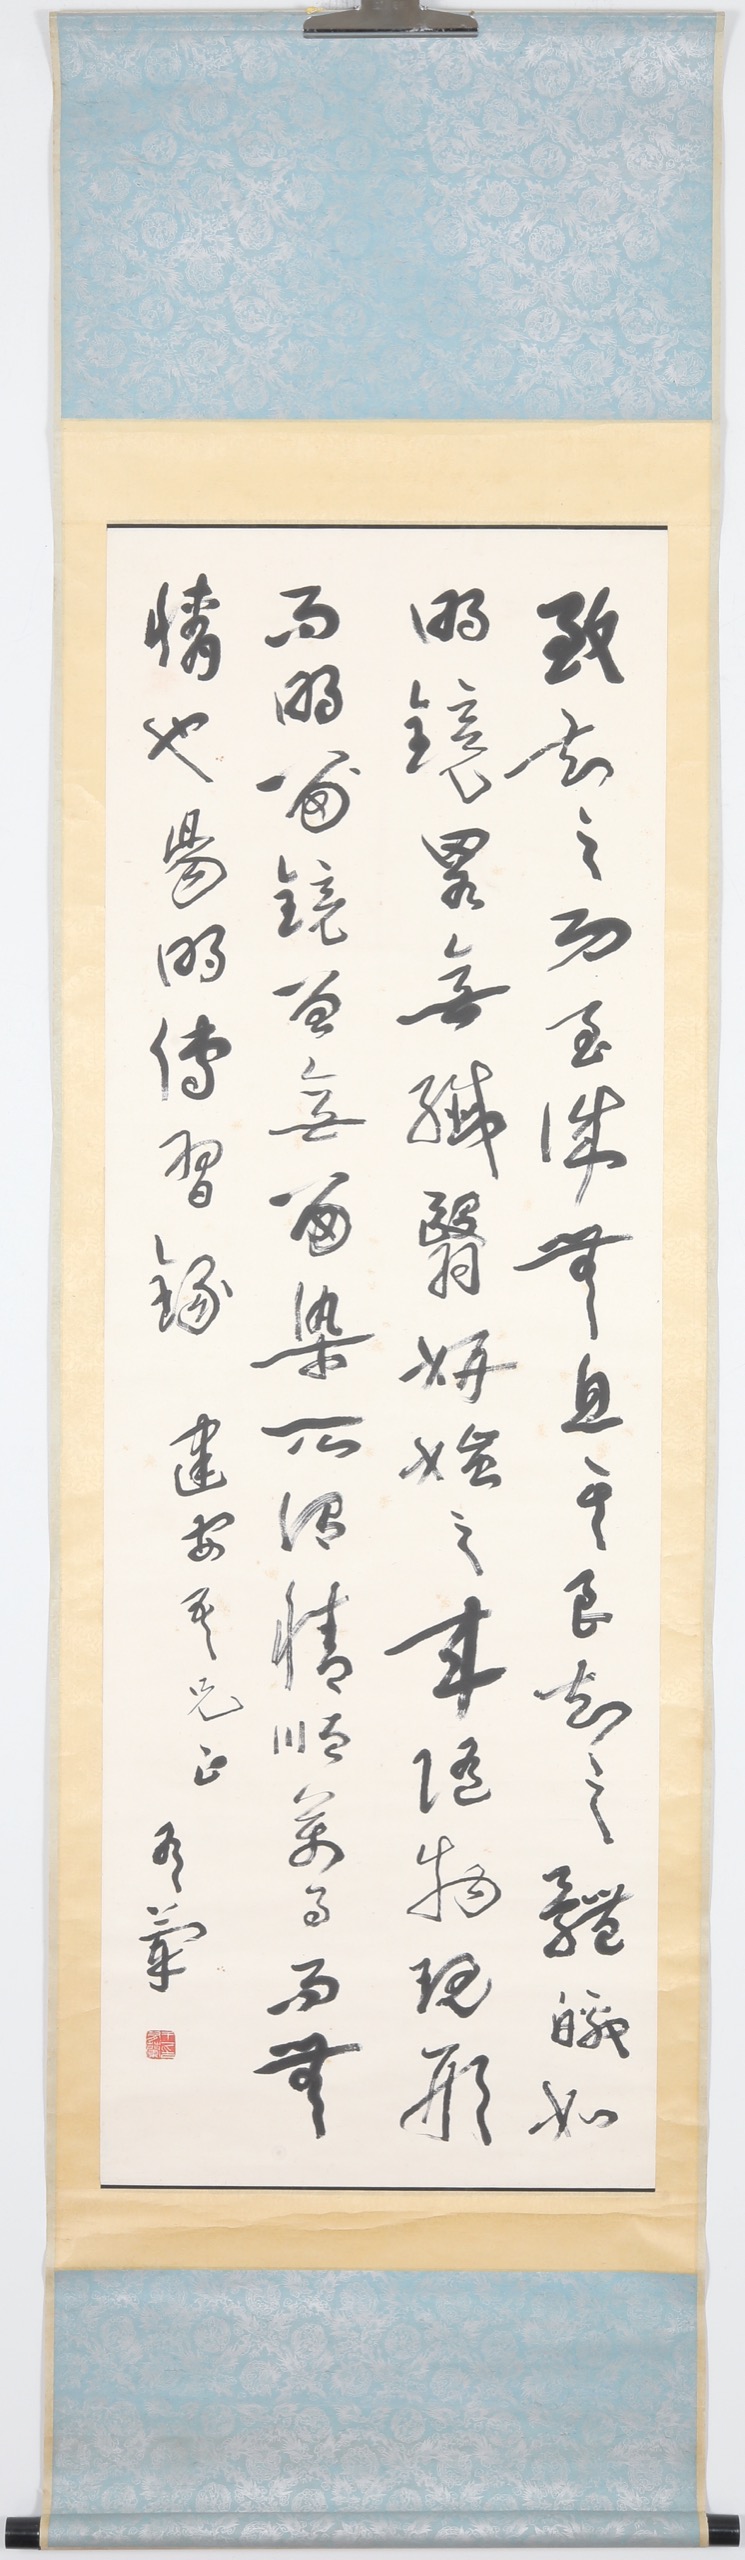 致知之功至誠無息其良知之體皦如
明鏡畧無纖翳妍媸之來隨物現形
而明留鏡曾無留染所謂情順萬事而無
情也陽明傳習錄 建安吾兄正